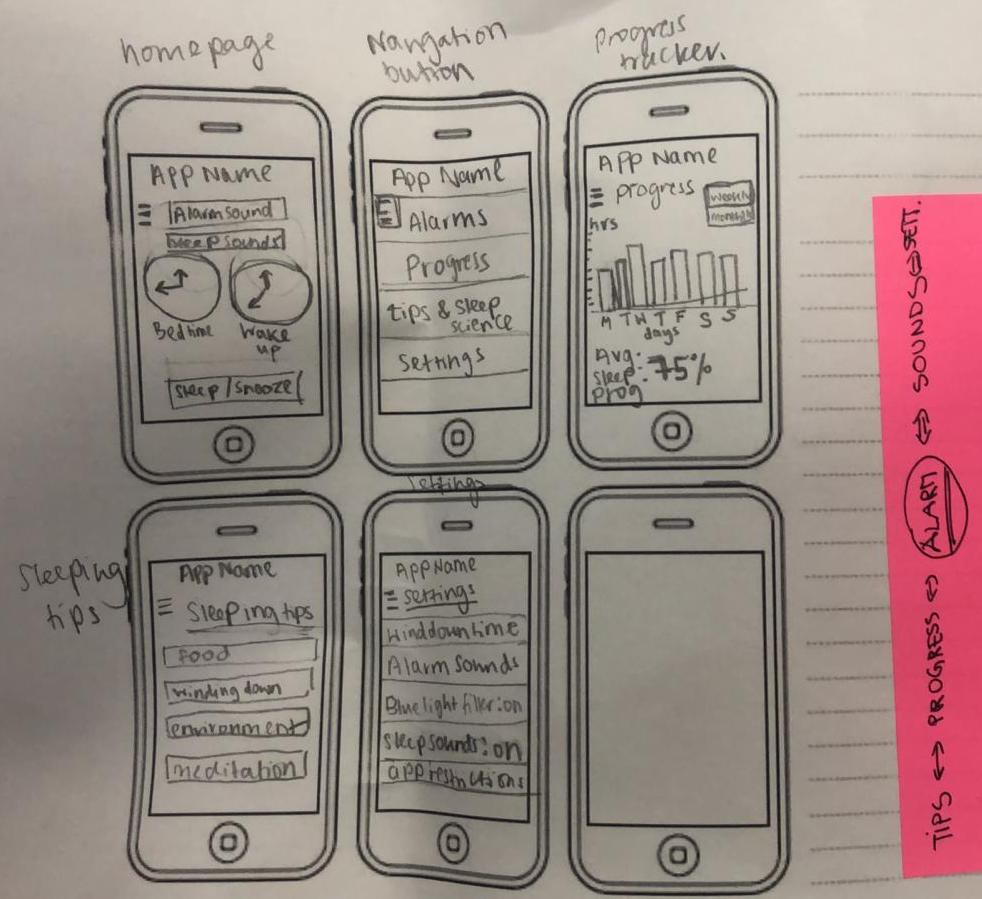 homepage
Navigation
button
Progress
tracker.
APP Name
Alarm sound
Sleep sounds
Bedtime
Wake
up
Sleep/Snooze
App Name
Alarms
Progress
tips & sleep
science
Settings
APP Name
progress
weekly
monthly
hrs
M T W T F S S
days
Avg.
sleep:
prog
75%
Sleeping
tips
App Name
Sleeping tips
food
winding down
environment
meditation
Settings
APP Name
Settings
winddown time
Alarm Sounds
Blue light filter:on
Sleep sounds: on
app restrictions
TIPS ↔ PROGRESS ⇔ ALARM ⇔ SOUNDS ⇔ SETT.